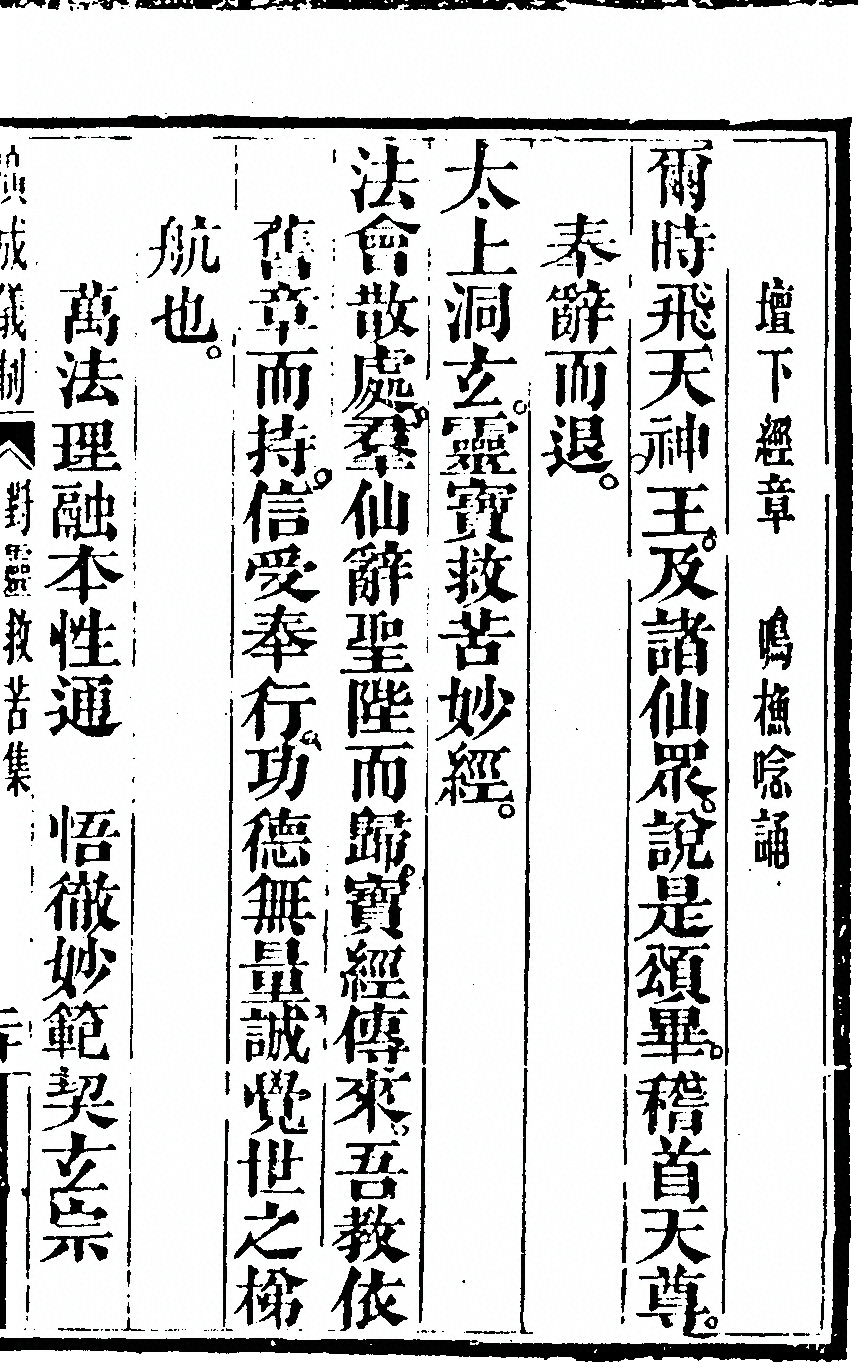 壇下經章　鳴樵唸誦
爾時飛天神王。及諸仙眾。說是頌畢。稽首天尊。
奉辭而退。
太上洞玄。靈寶救苦妙經。
法會散處。羣仙辭聖陛而歸。寶經傳來。吾教依
舊章而持。信受奉行。功德無量。誠覺世之梯
航也。
萬法理融本性通　悟徹妙範契玄宗
成儀制　對靈救苦集